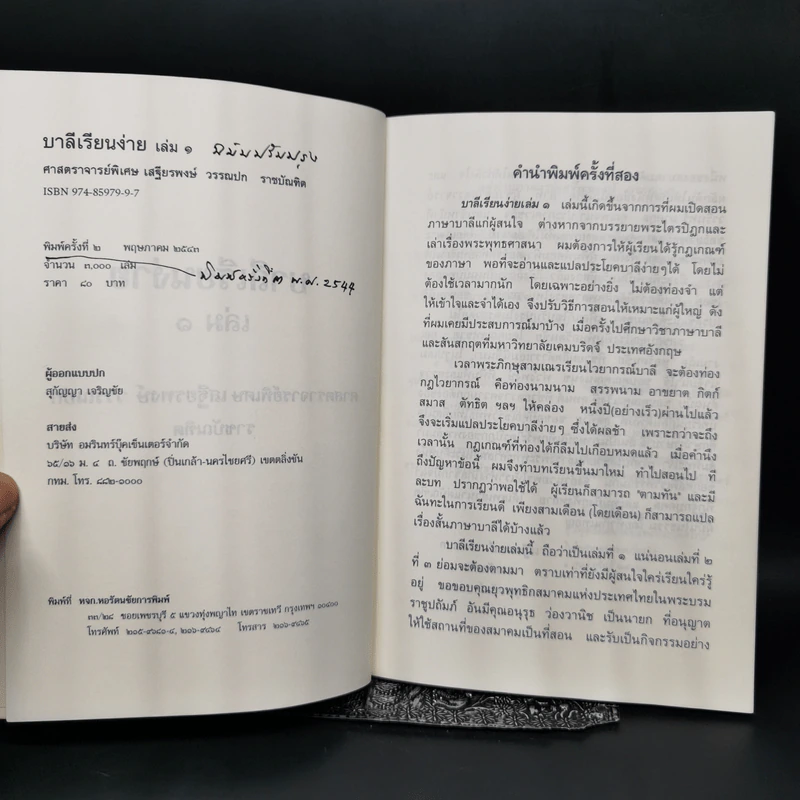 บาลีเรียนง่าย เล่ม ๑ ฉบับปรับปรุง
ศาสตราจารย์พิเศษ เสฐียรพงษ์ วรรณปก ราชบัณฑิต
ISBN 974-85979-9-7
พิมพ์ครั้งที่ ๒ พฤษภาคม ๒๕๔๓
จำนวน ๓,๐๐๐ เล่ม
พิมพ์ครั้งที่ ๓ พ.ศ. 2544
ราคา ๘๐ บาท
ผู้ออกแบบปก
สุกัญญา เจริญชัย
สายส่ง
บริษัท อมรินทร์บุ๊คเซ็นเตอร์จำกัด
๖๕/๑๖ ม. ๔ ถ. ชัยพฤกษ์ (ปิ่นเกล้า-นครไชยศรี) เขตตลิ่งชัน
กทม. โทร. ๘๘๒-๑๐๐๐
พิมพ์ที่ หจก.หอรัตนชัยการพิมพ์
๓๓/๒๘ ซอยเพชรบุรี ๕ แขวงทุ่งพญาไท เขตราชเทวี กรุงเทพฯ ๑๐๔๐๐
โทรศัพท์ ๒๑๕-๙๖๘๑-๔, ๒๑๖-๙๔๖๔ โทรสาร ๒๑๖-๙๔๖๕
คำนำพิมพ์ครั้งที่สอง
บาลีเรียนง่ายเล่ม ๑ เล่มนี้เกิดขึ้นจากการที่ผมเปิดสอน
ภาษาบาลีแก่ผู้สนใจ ต่างหากจากบรรยายพระไตรปิฎกและ
เล่าเรื่องพระพุทธศาสนา ผมต้องการให้ผู้เรียนได้รู้กฎเกณฑ์
ของภาษา พอที่จะอ่านและแปลประโยคบาลีง่ายๆได้ โดยไม่
ต้องใช้เวลามากนัก โดยเฉพาะอย่างยิ่ง ไม่ต้องท่องจำ แต่
ให้เข้าใจและจำได้เอง จึงปรับวิธีการสอนให้เหมาะแก่ผู้ใหญ่ ดัง
ที่ผมเคยมีประสบการณ์มาบ้าง เมื่อครั้งไปศึกษาวิชาภาษาบาลี
และสันสกฤตที่มหาวิทยาลัยเคมบริดจ์ ประเทศอังกฤษ
เวลาพระภิกษุสามเณรเรียนไวยากรณ์บาลี จะต้องท่อง
กฎไวยากรณ์ คือท่องนามนาม สรรพนาม อาขยาต กิตก์
สมาส ตัทธิต ฯลฯ ให้คล่อง หนึ่งปี(อย่างเร็ว)ผ่านไปแล้ว
จึงจะเริ่มแปลประโยคบาลีง่ายๆ ซึ่งได้ผลช้า เพราะกว่าจะถึง
เวลานั้น กฎเกณฑ์ที่ท่องได้ก็ลืมไปเกือบหมดแล้ว เมื่อคำนึง
ถึงปัญหาข้อนี้ ผมจึงทำบทเรียนขึ้นมาใหม่ ทำไปสอนไป ที
ละบท ปรากฏว่าพอใช้ได้ ผู้เรียนก็สามารถ "ตามทัน" และมี
ฉันทะในการเรียนดี เพียงสามเดือน (โดยเดือน) ก็สามารถแปล
เรื่องสั้นภาษาบาลีได้บ้างแล้ว
บาลีเรียนง่ายเล่มนี้ ถือว่าเป็นเล่มที่ ๑ แน่นอนเล่มที่ ๒
ที่ ๓ ย่อมจะต้องตามมา ตราบเท่าที่ยังมีผู้สนใจใคร่เรียนใคร่รู้
อยู่ ขอขอบคุณยุวพุทธิกสมาคมแห่งประเทศไทยในพระบรม
ราชูปถัมภ์ อันมีคุณอนุรุธ ว่องวานิช เป็นนายก ที่อนุญาต
ให้ใช้สถานที่ของสมาคมเป็นที่สอน และรับเป็นกิจกรรมอย่าง